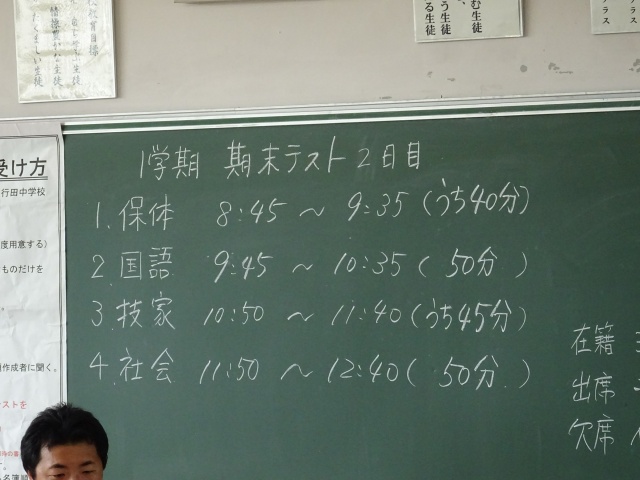 む生徒
う生徒
る生徒
たくましい生徒
受け方
行田中学校
度用意する)
ものだけを
作成者に聞く。
ストを
1学期 期末テスト2日目
1.保体 8:45 〜 9:35(うち40分)
2.国語 9:45 〜 10:35( 50分 )
3.技家 10:50 〜 11:40(うち45分)
4.社会 11:50 〜 12:40( 50分 )
在籍
出席
欠席